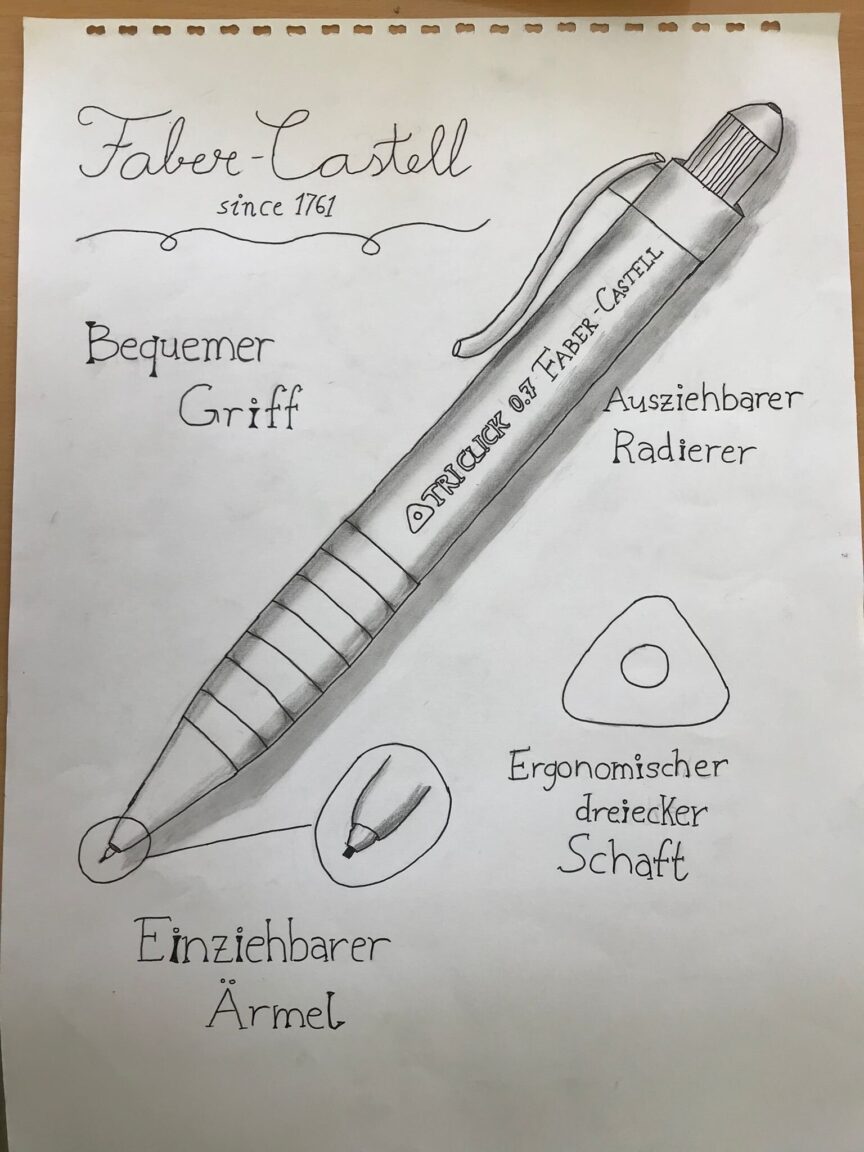 Faber-Castell
since 1761
Bequemer
Griff
TRI CLICK 0.7 FABER-CASTELL
Ausziehbarer
Radierer
Ergonomischer
dreiecker
Schaft
Einziehbarer
Ärmel